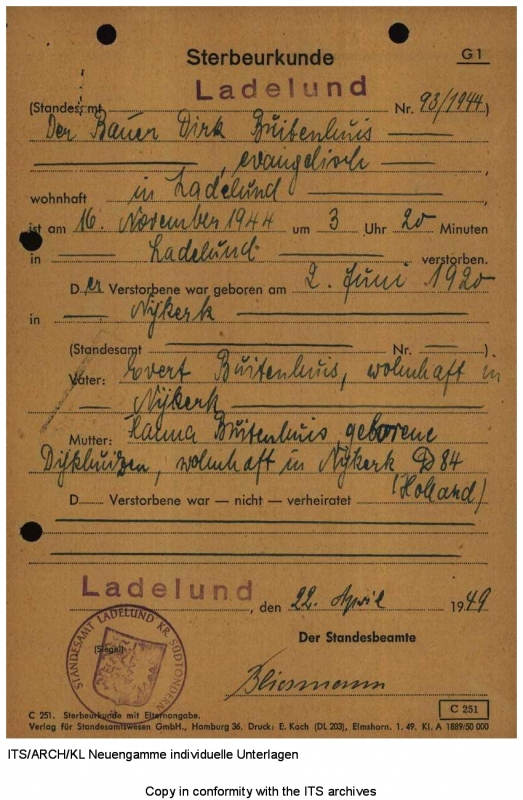 Sterbeurkunde
G 1
(Standesamt Ladelund Nr. 93/1944)
Der Bauer Dirk Buitenhuis
, evangelisch
wohnhaft in Ladelund
ist am 16. November 1944 um 3 Uhr 20 Minuten
in Ladelund verstorben.
Der Verstorbene war geboren am 2. Juni 1920
in Nijkerk
(Standesamt Nr. ).
Vater: Evert Buitenhuis, wohnhaft in
Nijkerk
Mutter: Hanna Buitenhuis geborene
Dijkhuizen, wohnhaft in Nijkerk D 84
(Holland)
D Verstorbene war — nicht — verheiratet
Ladelund, den 22. April 1949
Der Standesbeamte
(Siegel)
STANDESAMT LADELUND KR. SÜDTONDERN
C 251. Sterbeurkunde mit Elternangabe.
C 251
Verlag für Standesamtswesen GmbH., Hamburg 36. Druck: E. Koch (DL 203), Elmshorn. 1. 49. Kl. A 1889/50 000
ITS/ARCH/KL Neuengamme individuelle Unterlagen
Copy in conformity with the ITS archives